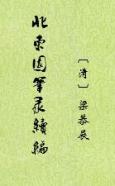 北東園筆录續編
［清］梁恭辰